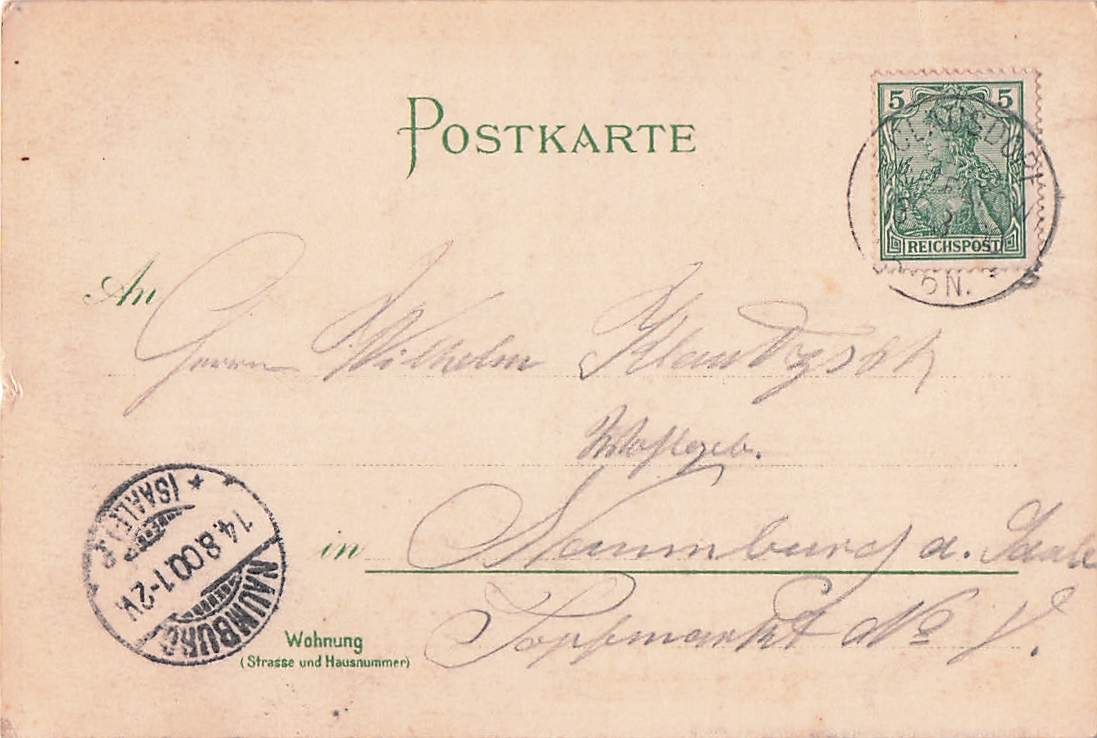 POSTKARTE
5 5
REICHSPOST
6N.
An
Herrn Wilhelm
Wohlgeb.
in Naumburg a. Saale
Wohnung
(Strasse und Hausnummer)
Topfmarkt No
NAUMBURG
(SAALE)
14.8.00.1-2V.